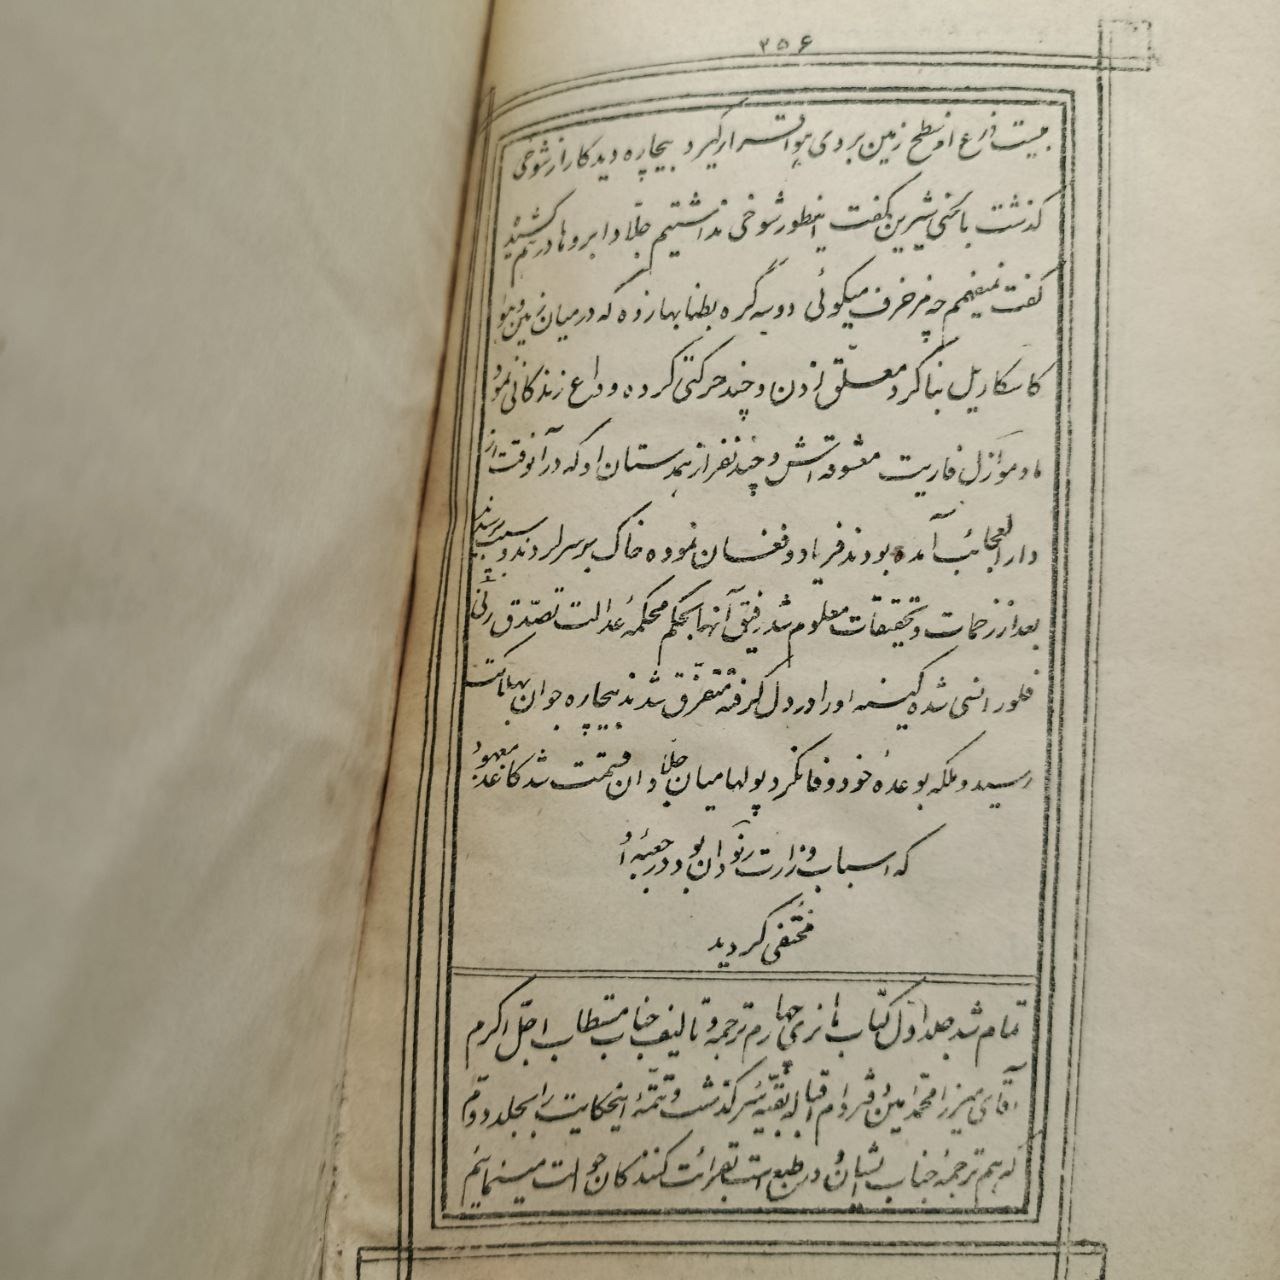 ۲۵۶
بیست ذرع از سطح زمین بر روی هوا قرار گیرد بیچاره دید کار از شوخی
گذشت با سخنی شیرین گفت اینطور شوخی نداشتیم جلّاد ابروها درهم کشید
گفت نمیفهمم چه مزخرف میگوئی دو سه گره بطنابها زده که در میان زمین و هوا
کاسکاریل بنا کرد معلّق زدن و چند حرکتی کرده وداع زندگانی نمود
مادموازل فاریت معشوقه اش و چند نفر از همدستان او که در آنوقت از
دار العجائب آمده بودند فریاد و فغان نموده خاک بر سر کردند و سبب پرسیدند
بعد از زحمات و تحقیقات معلوم شد رفیق آنها بحکم محکمهٔ عدالت تصدّق
فلورانسی شده کینه او را در دل گرفته متفرّق شدند بیچاره جوان بهلاکت
رسید و ملکه بوعدهٔ خود وفا نکرد پولها میان جلّادان قسمت شد کاغذ معهود
که اسباب وزارت رنودان بود در جعبهٔ او
مختفی گردید
تمام شد جلد اوّل کتاب هانری چهارم ترجمه و تالیف جناب مستطاب اجلّ اکرم
آقای میرزا محمّد امین دفتر دام اقباله بقیّه سرگذشت و تتمّهٔ اینحکایت را بجلد دوّم
که هم ترجمهٔ جناب ایشان و در طبع است بقرائت کنندگان حوالت مینمائیم